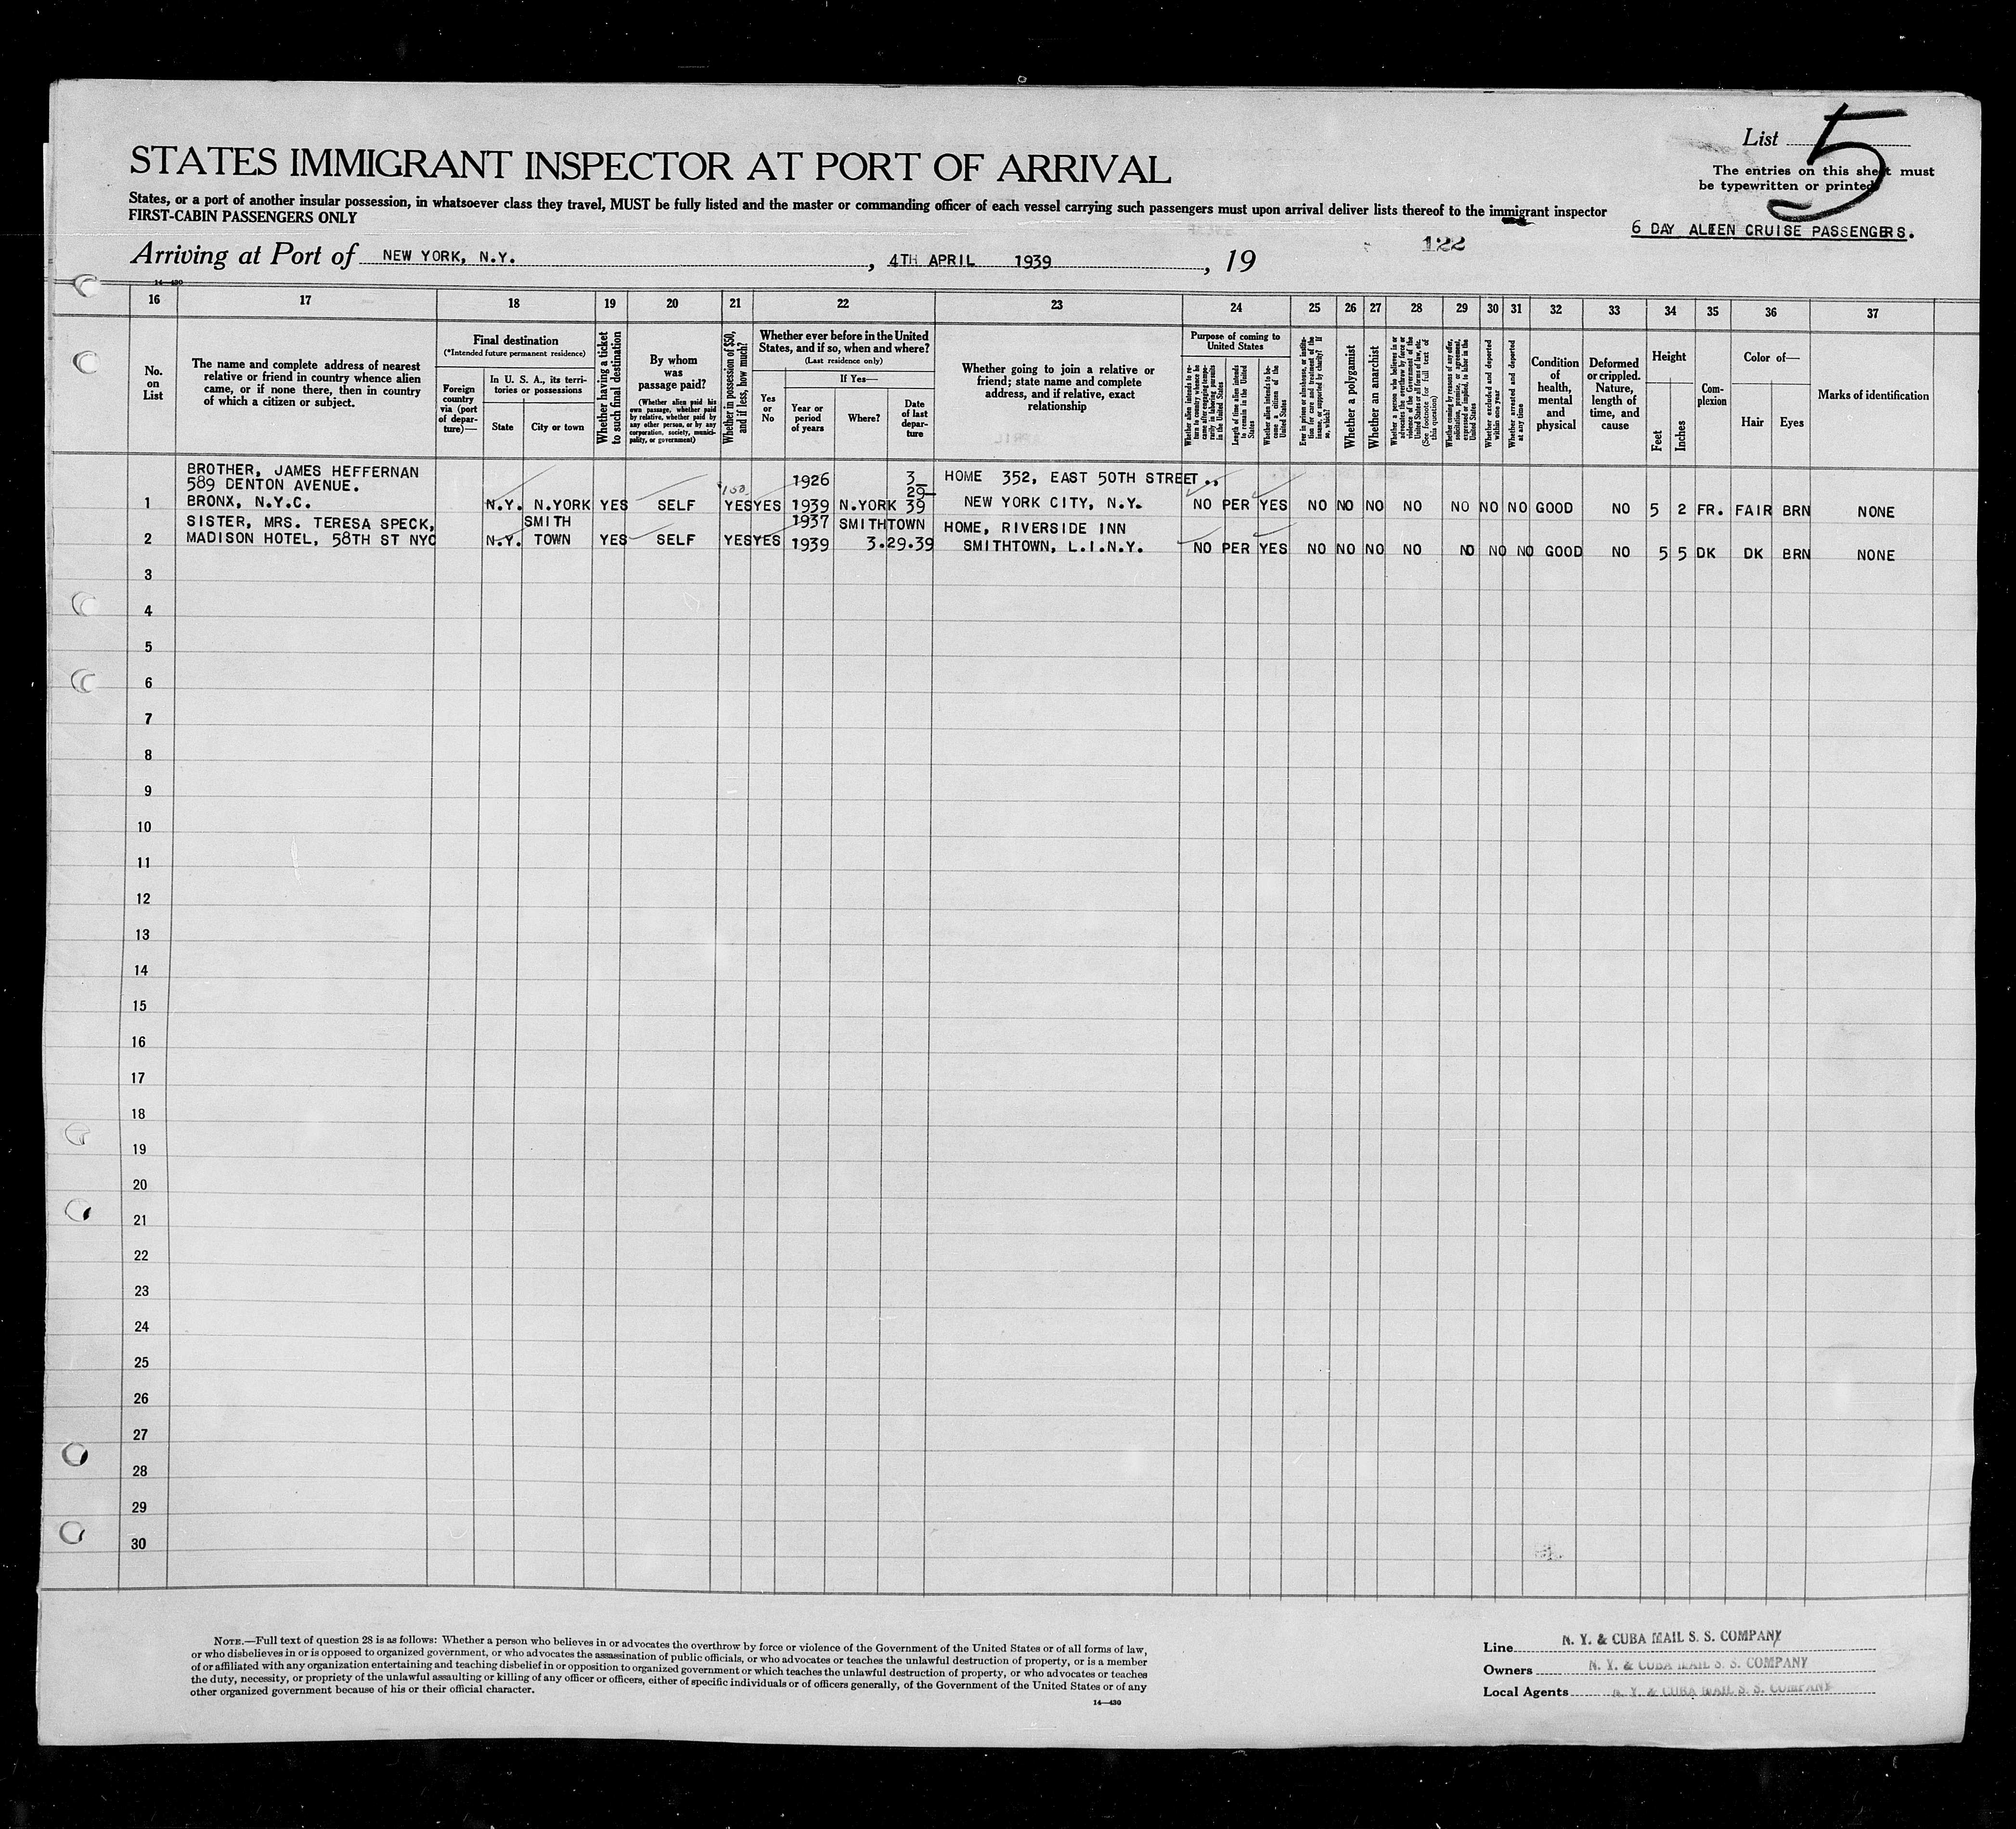 List 5
The entries on this sheet must
be typewritten or printed
STATES IMMIGRANT INSPECTOR AT PORT OF ARRIVAL
States, or a port of another insular possession, in whatsoever class they travel, MUST be fully listed and the master or commanding officer of each vessel carrying such passengers must upon arrival deliver lists thereof to the immigrant inspector
FIRST-CABIN PASSENGERS ONLY
6 DAY ALIEN CRUISE PASSENGERS.
122
Arriving at Port of NEW YORK, N.Y. , 4TH APRIL 1939 , 19
14—430
16 17 18 19 20 21 22 23 24 25 26 27 28 29 30 31 32 33 34 35 36 37
No.
on
List
The name and complete address of nearest
relative or friend in country whence alien
came, or if none there, then in country
of which a citizen or subject.
Final destination
(*Intended future permanent residence)
Foreign
country
via (port
of depar-
ture)—
In U. S. A., its terri-
tories or possessions
State
City or town
Whether having a ticket
to such final destination
By whom
was
passage paid?
(Whether alien paid his
own passage, whether paid
by relative, whether paid by
any other person, or by any
corporation, society, munici-
pality, or government)
Whether in possession of $50,
and if less, how much?
Whether ever before in the United
States, and if so, when and where?
(Last residence only)
Yes
or
No
If Yes—
Year or
period
of years
Where?
Date
of last
depar-
ture
Whether going to join a relative or
friend; state name and complete
address, and if relative, exact
relationship
Purpose of coming to
United States
Whether alien intends to re-
turn to country whence he
came after engaging tempo-
rarily in laboring pursuits
in the United States
Length of time alien intends
to remain in the United
States
Whether alien intends to be-
come a citizen of the
United States
Ever in prison or almshouse, or institu-
tion for care and treatment of the
insane, or supported by charity? If
so, which?
Whether a polygamist
Whether an anarchist
Whether a person who believes in or
advocates the overthrow by force or
violence of the Government of the
United States or all forms of law, etc.
(See footnote for full text of
this question)
Whether coming by reasons of any offer,
solicitation, promise, or agreement,
expressed or implied, to labor in the
United States
Whether excluded and deported
within one year
Whether arrested and deported
at any time
Condition
of
health,
mental
and
physical
Deformed
or crippled.
Nature,
length of
time, and
cause
Height
Feet
Inches
Com-
plexion
Color of—
Hair
Eyes
Marks of identification
BROTHER, JAMES HEFFERNAN 1926 3- HOME 352, EAST 50TH STREET.,
589 DENTON AVENUE. 29-
1 BRONX, N.Y.C. N.Y. N.YORK YES SELF YES YES 1939 N.YORK 39 NEW YORK CITY, N.Y. NO PER YES NO NO NO NO NO NO NO GOOD NO 5 2 FR. FAIR BRN NONE
SISTER, MRS. TERESA SPECK, SMITH 1937 SMITHTOWN HOME, RIVERSIDE INN
2 MADISON HOTEL, 58TH ST NYC N.Y. TOWN YES SELF YES YES 1939 3.29.39 SMITHTOWN, L.I.N.Y. NO PER YES NO NO NO NO NO NO NO GOOD NO 5 5 DK DK BRN NONE
3
4
5
6
7
8
9
10
11
12
13
14
15
16
17
18
19
20
21
22
23
24
25
26
27
28
29
30
NOTE.—Full text of question 28 is as follows: Whether a person who believes in or advocates the overthrow by force or violence of the Government of the United States or of all forms of law,
or who disbelieves in or is opposed to organized government, or who advocates the assassination of public officials, or who advocates or teaches the unlawful destruction of property, or is a member
of or affiliated with any organization entertaining and teaching disbelief in or opposition to organized government or which teaches the unlawful destruction of property, or who advocates or teaches
the duty, necessity, or propriety of the unlawful assaulting or killing of any officer or officers, either of specific individuals or of officers generally, of the Government of the United States or of any
other organized government because of his or their official character.
14—430
Line N. Y. & CUBA MAIL S. S. COMPANY
Owners N. Y. & CUBA MAIL S. S. COMPANY
Local Agents N. Y. & CUBA MAIL S. S. COMPANY